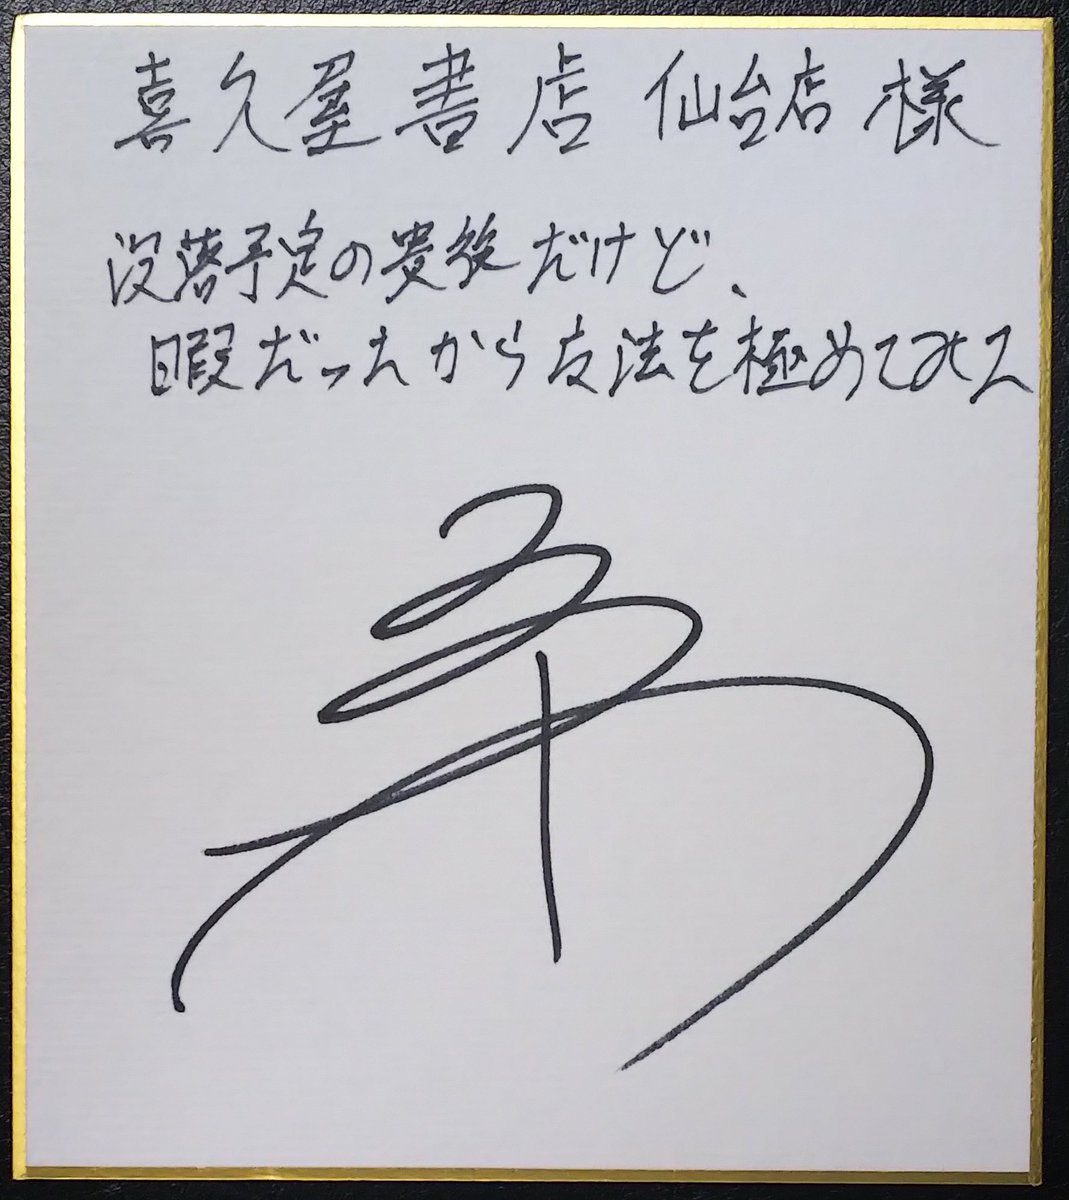 喜久屋書店 仙台店 様
没落予定の貴族だけど、
暇だったから魔法を極めてみた